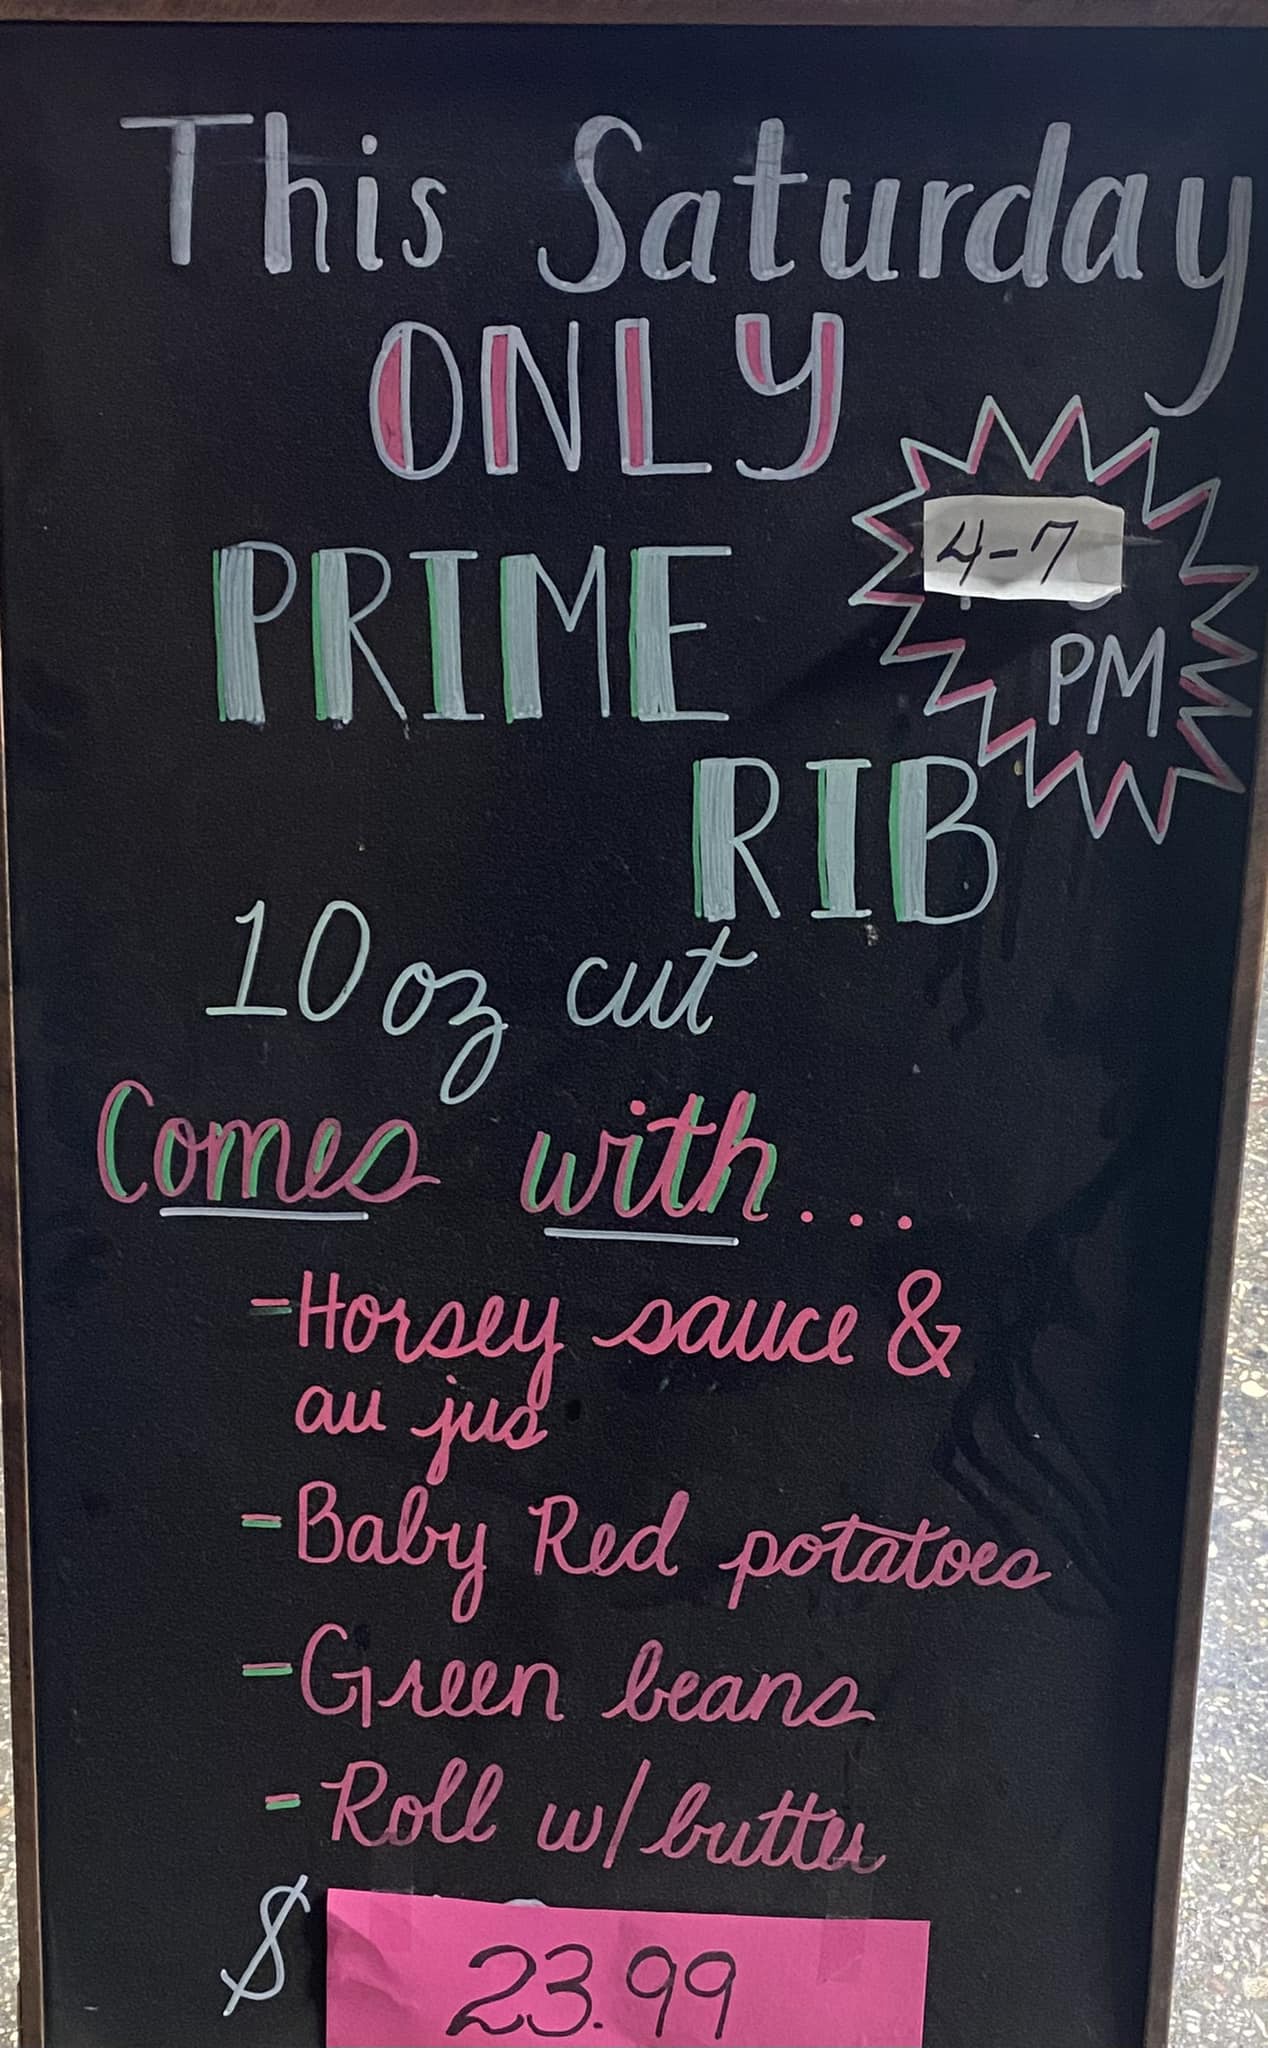 This Saturday
ONLY
4-7
PM
PRIME
RIB
10 oz cut
Comes with...
- Horsey sauce &
au jus
- Baby Red potatoes
- Green beans
- Roll w/ butter
$ 23.99